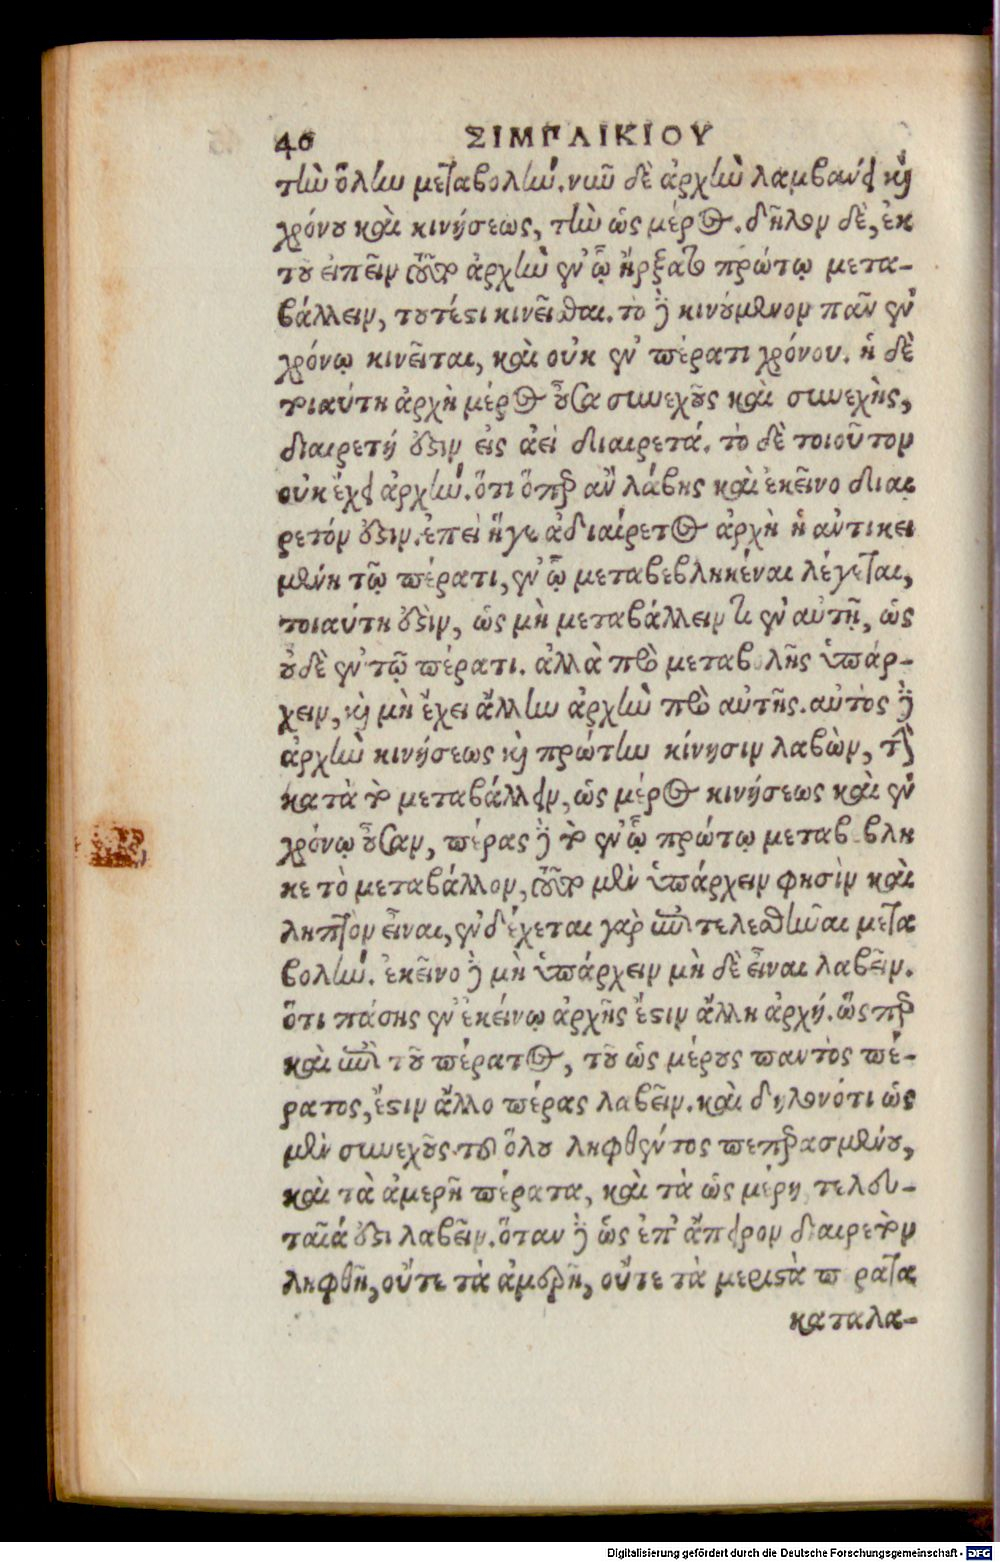 40 ΣΙΜΠΛΙΚΙΟΥ
τὴν ὅλην μεταβολήν. νῦν δὲ ἀρχὴν λαμβάνει καὶ
χρόνου καὶ κινήσεως, τὴν ὡς μέρος. δῆλον δὲ, ἐκ
τοῦ εἰπεῖν ταύτην ἀρχὴν ἐν ᾧ ἤρξατο πρώτῳ μετα-
βάλλειν, τουτέστι κινεῖσθαι. τὸ δὲ κινούμενον πᾶν ἐν
χρόνῳ κινεῖται, καὶ οὐκ ἐν πέρατι χρόνου. ἡ δὲ
τοιαύτη ἀρχὴ μέρος οὖσα συνεχοῦς καὶ συνεχὴς,
διαιρετή ἐστιν εἰς ἀεὶ διαιρετά. τὸ δὲ τοιοῦτον
οὐκ ἔχει ἀρχήν. ὅτι ὅπερ ἂν λάβῃς καὶ ἐκεῖνο διαι
ρετόν ἐστιν. ἐπεὶ ἥγε ἀδιαίρετος ἀρχὴ ἡ ἀντικει
μένη τῷ πέρατι, ἐν ᾧ μεταβεβληκέναι λέγεται,
τοιαύτη ἐστὶν, ὡς μὴ μεταβάλλειν τι ἐν αὐτῇ, ὡς
οὐδὲ ἐν τῷ πέρατι. ἀλλὰ πρὸ μεταβολῆς ὑπάρ-
χειν, καὶ μὴ ἔχει ἄλλην ἀρχὴν πρὸ αὐτῆς. αὐτὸς δὲ
ἀρχὴν κινήσεως καὶ πρώτην κίνησιν λαβὼν, τὴν
κατὰ τὸ μεταβάλλειν, ὡς μέρος κινήσεως καὶ ἐν
χρόνῳ οὖσαν, πέρας δὲ τὸ ἐν ᾧ πρώτῳ μεταβεβλη
κε τὸ μεταβάλλον, τοῦτο μὲν ὑπάρχειν φησὶν καὶ
ληπτὸν εἶναι, ἐνδέχεται γὰρ ἐπιτελεσθῆναι μετα
βολήν. ἐκεῖνο δὲ μὴ ὑπάρχειν μὴ δὲ εἶναι λαβεῖν.
ὅτι πάσης ἐν ἐκείνῳ ἀρχῆς ἔστιν ἄλλη ἀρχή. ὥσπερ
καὶ ἐπὶ τοῦ πέρατος, τοῦ ὡς μέρους παντὸς πέ-
ρατος, ἔστιν ἄλλο πέρας λαβεῖν. καὶ δηλονότι ὡς
μὲν συνεχοῦς τοῦ ὅλου ληφθέντος πεπερασμένου,
καὶ τὰ ἀμερῆ πέρατα, καὶ τὰ ὡς μέρη τελευ-
ταῖά ἐστι λαβεῖν. ὅταν δὲ ὡς ἐπ᾽ ἄπειρον διαιρετὸν
ληφθῇ, οὔτε τὰ ἀμερῆ, οὔτε τὰ μεριστὰ πέρατα
καταλα-
Digitalisierung gefördert durch die Deutsche Forschungsgemeinschaft - DFG